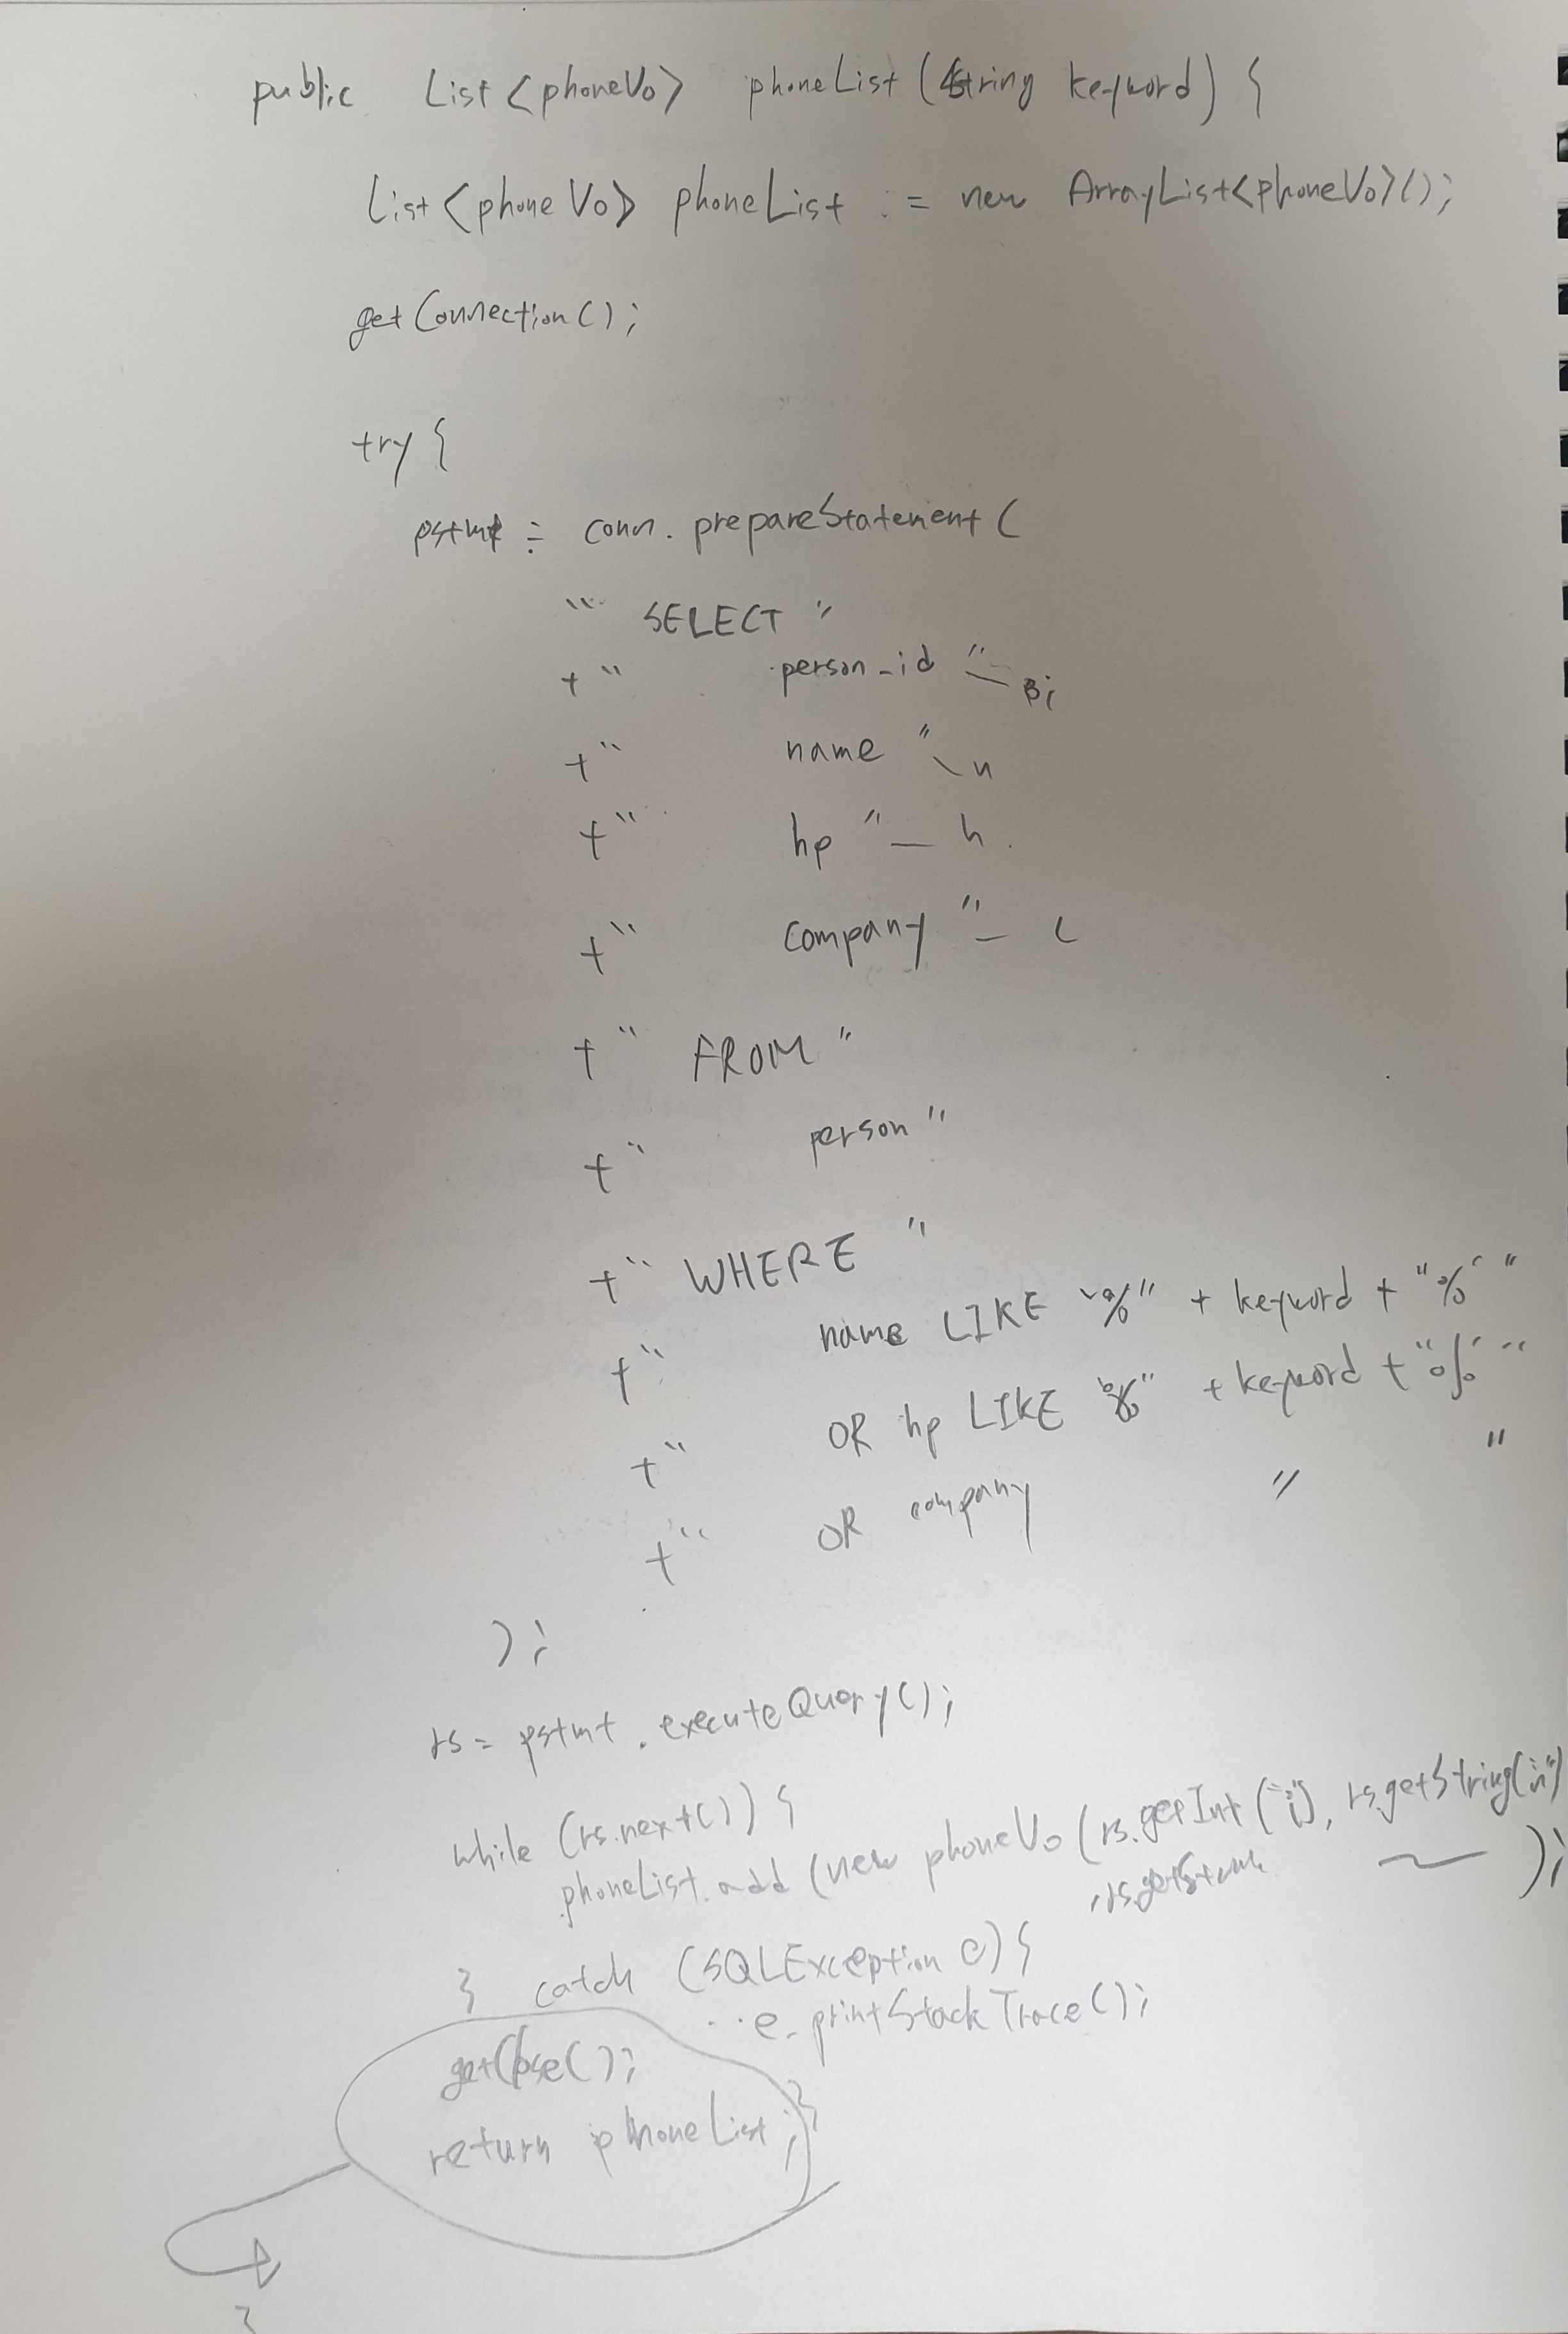 public List<phoneVo> phoneList (String keyword) {
List<phoneVo> phoneList = new ArrayList<phoneVo>();
getConnection();
try {
pstmt = conn.prepareStatement (
" SELECT "
+" person_id " i
+" name " n
+" hp " — h
+" company " — c
+" FROM "
+" person "
+" WHERE "
+" name LIKE '%" + keyword + "%' "
+" OR hp LIKE '%" + keyword + "%' "
+" OR company " "
);
rs = pstmt.executeQuery();
while (rs.next()) {
phoneList.add (new phoneVo (rs.getInt("i"), rs.getString("n")
, rs.getString ~ );
} catch (SQLException e) {
e.printStackTrace();
}
getClose();
return phoneList;
}